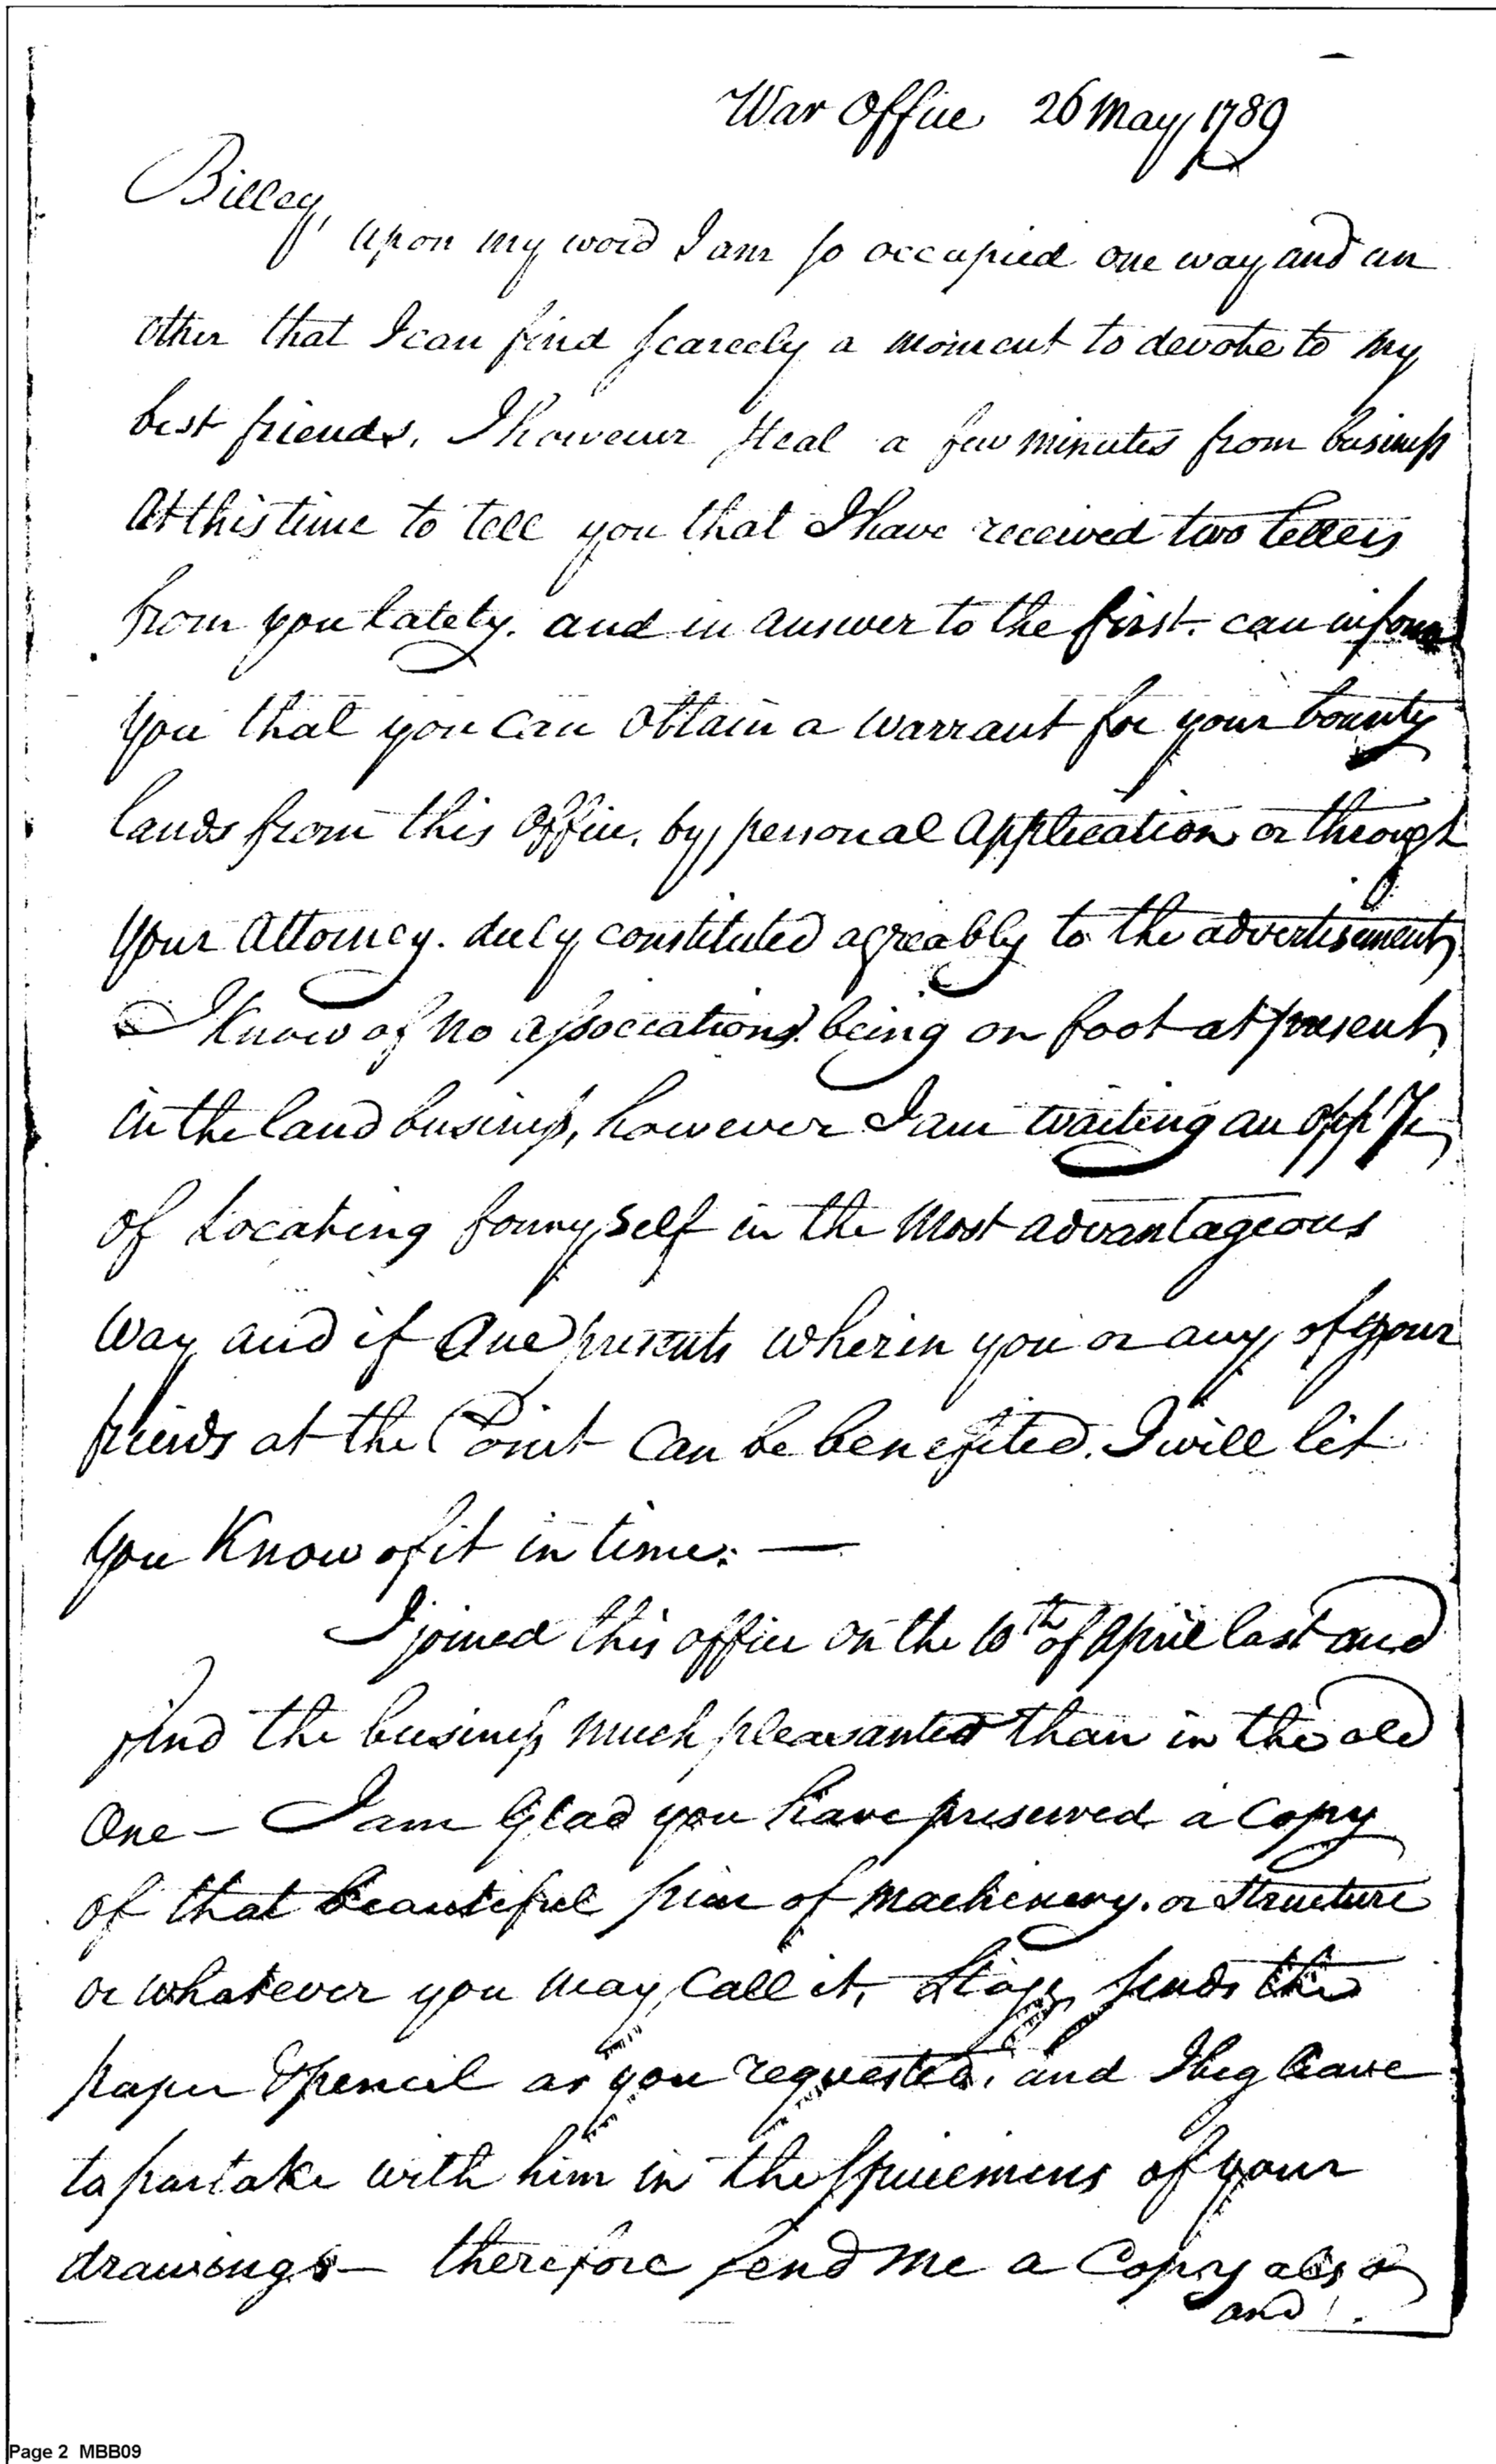 War Office 26 May 1789
Billey,
upon my word I am so occupied one way and an
other that I can find scarcely a moment to devote to my
best friends. I however steal a few minutes from business
At this time to tell you that I have received two letters
from you lately. and in answer to the first. can inform
you that you can obtain a warrant for your bounty
lands from this Office. by personal application or through
your Attorney. duly constituted agreably to the advertisement
I Know of no associations being on foot at present
in the land business, however I am waiting an oppty
of Locating for my self in the Most advantageous
way and if One presents wherein you or any of your
friends at the Point can be benefited. I will let
you Know of it in time. —
I joined this office on the 10th of April last and
find the business much pleasanter than in the old
One – I am Glad you have preserved a Copy
of that beautiful piece of machinery. or structure
or whatever you may call it, Stagg sends the
paper & pencil as you requested, and I beg leave
to partake with him in the specimens of your
drawings – therefore send me a Copy also
and
Page 2 MBB09